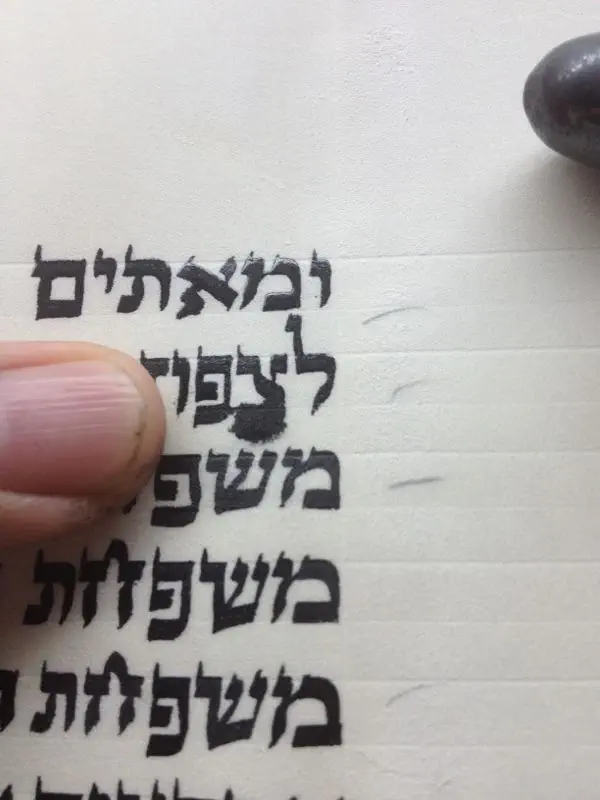 ומאתים
לצפו
משפ
משפחת
משפחת